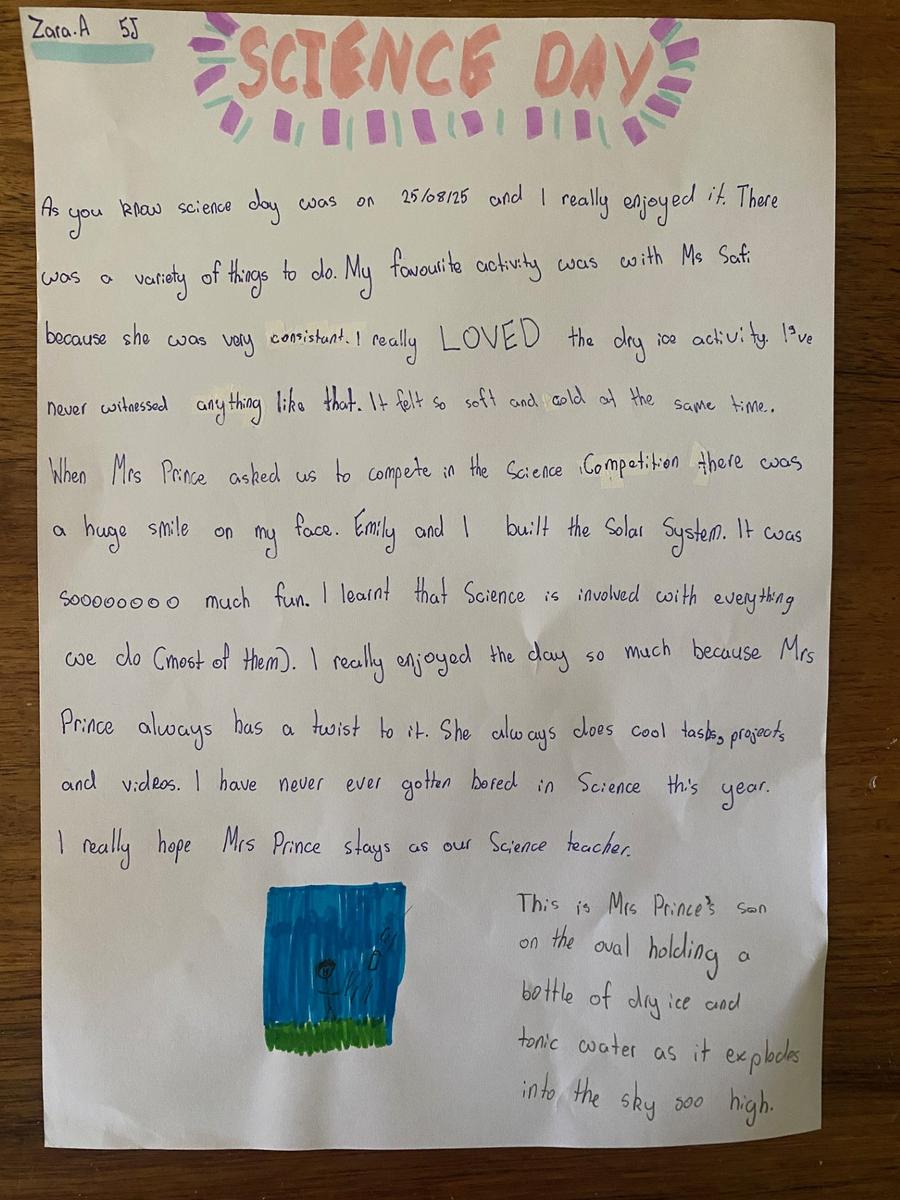 Zara.A 5J
SCIENCE DAY
As you know science day was on 25/08/25 and I really enjoyed it. There
was a variety of things to do. My favourite activity was with Ms Safi
because she was very consistant. I really LOVED the dry ice activity. I've
never witnessed anything like that. It felt so soft and cold at the same time.
When Mrs Prince asked us to compete in the Science Competition there was
a huge smile on my face. Emily and I built the Solar System. It was
sooooooooo much fun. I learnt that Science is involved with everything
we do (most of them). I really enjoyed the day so much because Mrs
Prince always has a twist to it. She always does cool tasks, projects
and videos. I have never ever gotten bored in Science this year.
I really hope Mrs Prince stays as our Science teacher.
This is Mrs Prince's son
on the oval holding a
bottle of dry ice and
tonic water as it explodes
into the sky soo high.